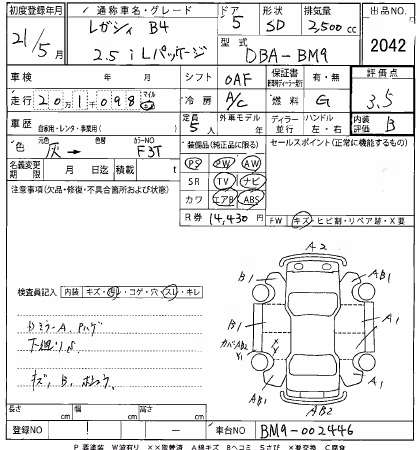 初度登録年月 通称車名・グレード ドア 形状 排気量 出品NO.
21/5月 レガシィ B4 5 SD 2,500cc 2042
2.5 i Lパッケージ 型式 DBA-BM9
車検 年 月 シフト OAF 保証書 有・無 評価点
走行 201098 マイル 冷房 A/C 燃料 G 3.5
車歴 自家用・レンタ・事業用( ) 定員 5人 外車モデル 年 ディーラー 並行 ハンドル 左・右 内装評価 B
色 元色 灰 → 色替 カラーNO F3T 装備品(純正品に限る) セールスポイント(正常に機能するもの)
PS PW AW
名義変更期限 月 日迄 積載 t SR TV ナビ
注意事項(欠品・修復・不具合箇所および状態) カワ エアB ABS
R券 14,430円 FW キズ・ヒビ割・リペア跡・X要
A2
B1 AB1
検査員記入 内装 キズ・汚レ・コゲ・穴・スレ・キレ
B1 A1
カバAB2
Y1 XY
A1 A1
AB2
キズ、B、
長さ cm 幅 cm 高さ cm
登録NO 車台NO BM9-002446
P 要塗装 W波有り ××取替済 A線キズ Bヘコミ Sさび ×要交換 C腐食